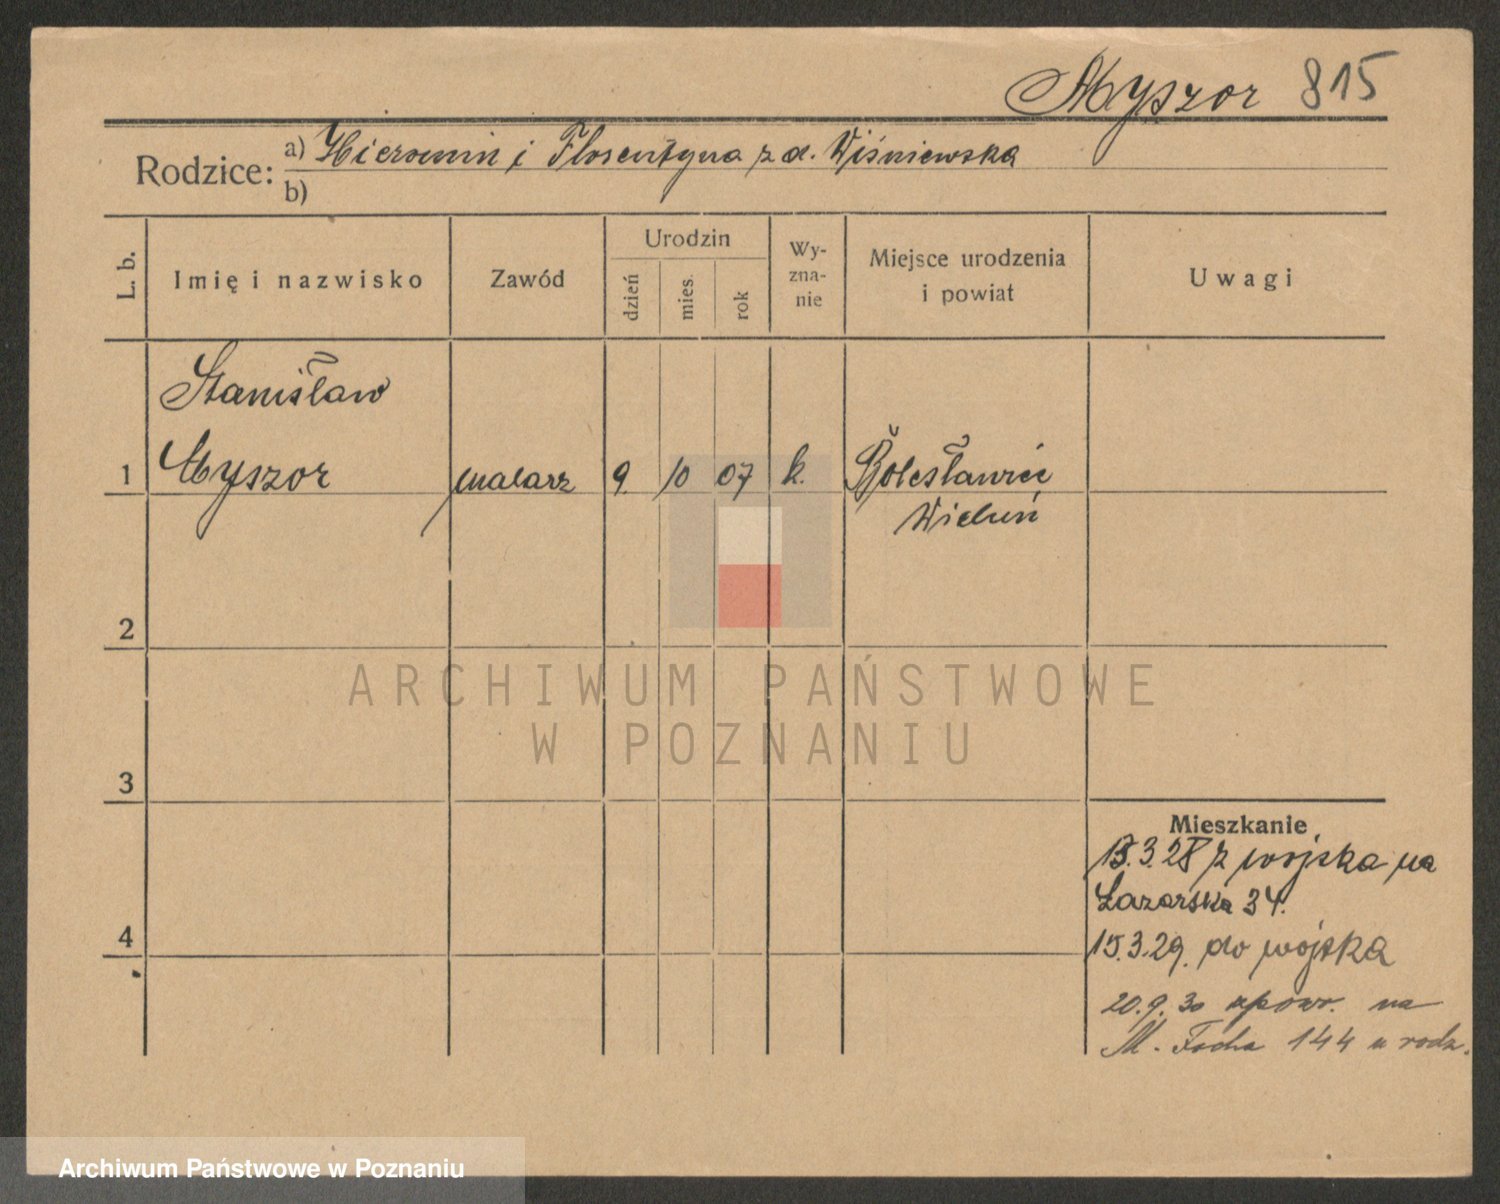 Myszor 815
Rodzice: a) Hieronim i Florentyna z d. Wiśniewska
b)
L. b.
Imię i nazwisko
Zawód
Urodzin
dzień
mies.
rok
Wy-
zna-
nie
Miejsce urodzenia
i powiat
Uwagi
Stanisław
1 Myszor malarz 9. 10 07 k. Bolesławiec
Wieluń
2
3
4
ARCHIWUM PAŃSTWOWE
W POZNANIU
Mieszkanie
13.3.28 z wojska na
Łazarska 34.
15.3.29. do wojska
20.9.30 z powr. na
M. Focha 144 u rodz.
Archiwum Państwowe w Poznaniu